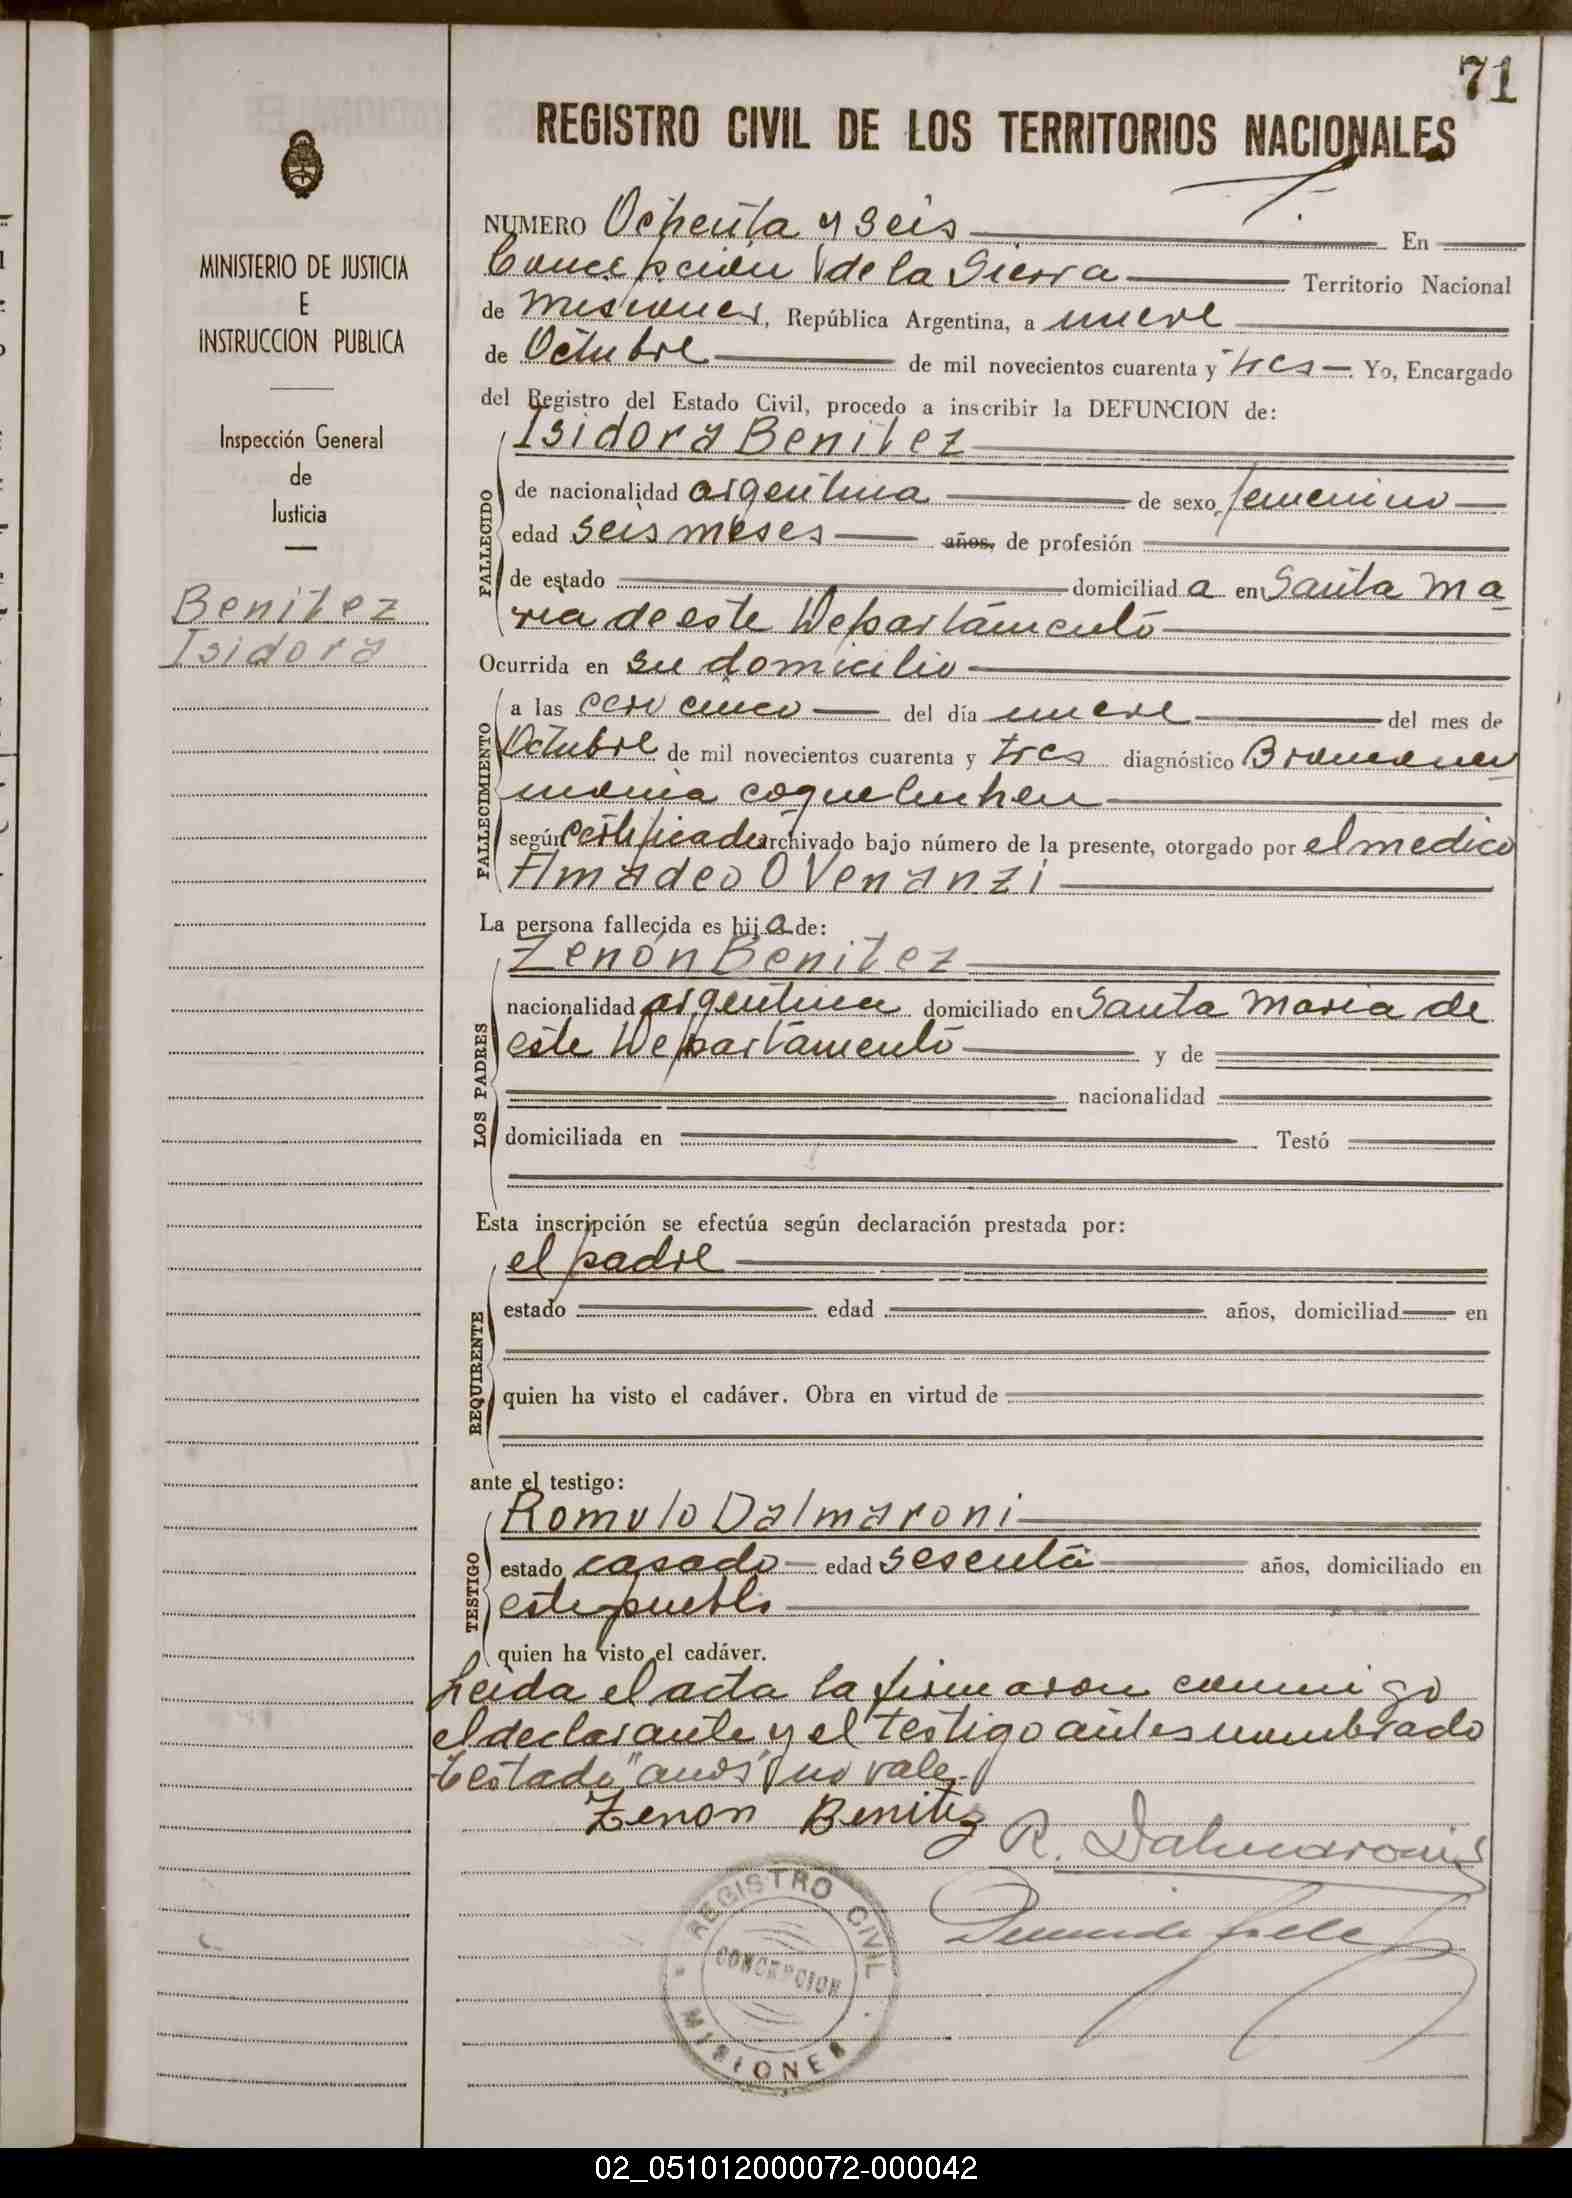 71
REGISTRO CIVIL DE LOS TERRITORIOS NACIONALES
MINISTERIO DE JUSTICIA
E
INSTRUCCION PUBLICA
Inspección General
de
Justicia
Benitez
Isidora
NUMERO Ochenta y seis En
Concepción de la Sierra Territorio Nacional
de Misiones, República Argentina, a nueve
de Octubre de mil novecientos cuarenta y tres Yo, Encargado
del Registro del Estado Civil, procedo a inscribir la DEFUNCION de:
Isidora Benitez
FALLECIDO
de nacionalidad argentina de sexo femenino
edad seis meses años, de profesión
de estado domiciliada en Santa Ma
ria de este Departamento
Ocurrida en su domicilio
FALLECIMIENTO
a las cero cinco del día nueve del mes de
Octubre de mil novecientos cuarenta y tres diagnóstico
coqueluchen
según certificado archivado bajo número de la presente, otorgado por el medico
Amadeo O Venanzi
La persona fallecida es hija de:
Zenón Benitez
LOS PADRES
nacionalidad argentina domiciliado en Santa Maria de
este Departamento y de
nacionalidad
domiciliada en Testó
Esta inscripción se efectúa según declaración prestada por:
el padre
REQUIRENTE
estado edad años, domiciliad en
quien ha visto el cadáver. Obra en virtud de
ante el testigo:
Romulo Dalmaroni
TESTIGO
estado casado edad sesenta años, domiciliado en
este pueblo
quien ha visto el cadáver.
Leida el acta la firmaron conmigo
el declarante y el testigo antes nombrado
Testado "años" no vale.
Zenon Benitez
R. Dalmaroni
REGISTRO CIVIL
CONCEPCION
MISIONES
02_051012000072-000042